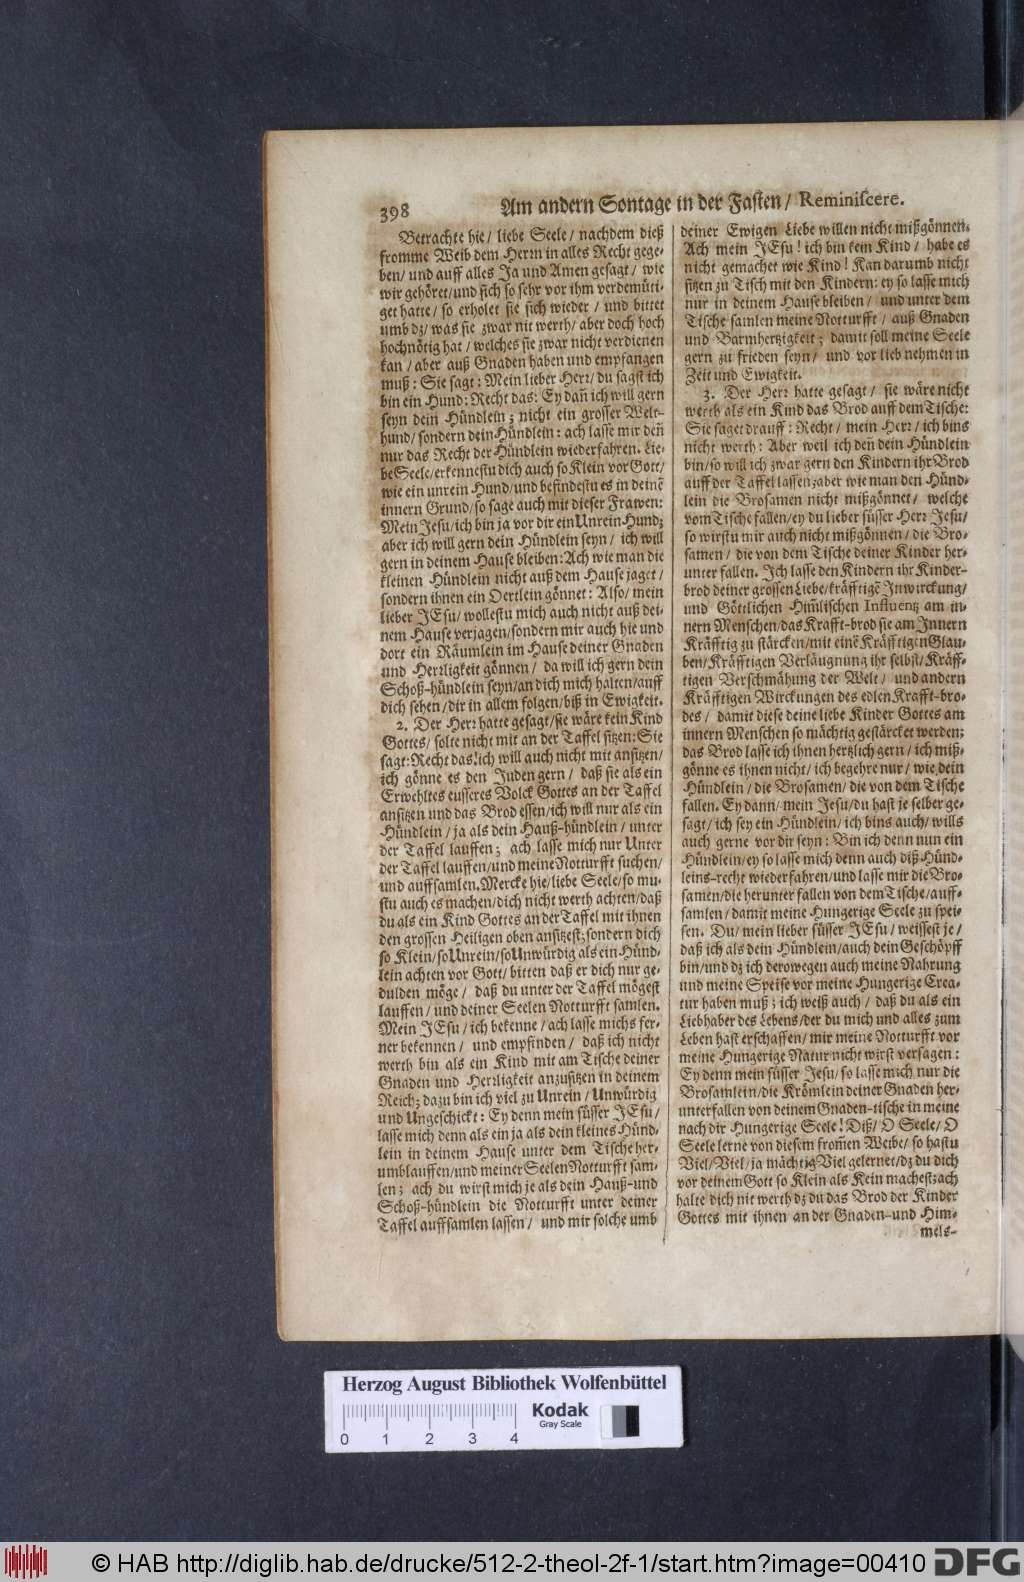 398
Am andern Sontage in der Fasten / Reminiscere.
Betrachte hie / liebe Seele / nachdem dieß
fromme Weib dem Herrn in alles Recht gege-
ben / und auff alles Ja und Amen gesagt / wie
wir gehöret / und sich so sehr vor ihm verdemüti-
get hatte / so erholet sie sich wieder / und bittet
umb dz / was sie zwar nit werth / aber doch hoch
hochnötig hat / welches sie zwar nicht verdienen
kan / aber auß Gnaden haben und empfangen
muß: Sie sagt: Mein lieber Herr / du sagst ich
bin ein Hund: Recht das: Ey dañ ich will gern
seyn dein Hündlein; nicht ein grosser Welt-
hund / sondern dein Hündlein: ach lasse mir deñ
nur das Recht der Hündlein wiederfahren. Lie-
be Seele / erkennestu dich auch so Klein vor Gott /
wie ein unrein Hund / und befindestu es in deinē
innern Grund / so sage auch mit dieser Frawen:
Mein Jesu / ich bin ja vor dir ein Unrein Hund;
aber ich will gern dein Hündlein seyn / ich will
gern in deinem Hause bleiben: Ach wie man die
kleinen Hündlein nicht auß dem Hause jaget /
sondern ihnen ein Oertlein gönnet: Also / mein
lieber JEsu / wollestu mich auch nicht auß dei-
nem Hause verjagen / sondern mir auch hie und
dort ein Räumlein im Hause deiner Gnaden
und Herrligkeit gönnen / da will ich gern dein
Schoß-hündlein seyn / an dich mich halten / auff
dich sehen / dir in allem folgen / biß in Ewigkeit.
2. Der Herr hatte gesagt / sie wäre kein Kind
Gottes / solte nicht mit an der Taffel sitzen: Sie
sagt: Recht das! ich will auch nicht mit ansitzen /
ich gönne es den Juden gern / daß sie als ein
Erwehltes eusseres Volck Gottes an der Taffel
ansitzen und das Brod essen / ich will nur als ein
Hündlein / ja als dein Hauß-hündlein / unter
der Taffel lauffen; ach lasse mich nur Unter
der Taffel lauffen / und meine Notturfft suchen /
und auffsamlen. Mercke hie / liebe Seele / so mu-
stu auch es machen / dich nicht werth achten / daß
du als ein Kind Gottes an der Taffel mit ihnen
den grossen Heiligen oben ansitzest; sondern dich
so Klein / so Unrein / so Unwürdig als ein Hünd-
lein achten vor Gott / bitten daß er dich nur ge-
dulden möge / daß du unter der Taffel mögest
lauffen / und deiner Seelen Notturfft samlen.
Mein JEsu / ich bekenne / ach lasse michs fer-
ner bekennen / und empfinden / daß ich nicht
werth bin als ein Kind mit am Tische deiner
Gnaden und Herrligkeit anzusitzen in deinem
Reich; dazu bin ich viel zu Unrein / Unwürdig
und Ungeschickt: Ey denn mein süsser JEsu /
lasse mich denn als ein ja als dein kleines Hünd-
lein in deinem Hause unter dem Tische her-
umblauffen / und meiner Seelen Notturfft sam-
len; ach du wirst mich je als dein Hauß-und
Schoß-hündlein die Notturfft unter deiner
Taffel auffsamlen lassen / und mir solche umb
deiner Ewigen Liebe willen nicht mißgönnen.
Ach mein JEsu! ich bin kein Kind / habe es
nicht gemachet wie Kind! Kan darumb nicht
sitzen zu Tisch mit den Kindern: ey so lasse mich
nur in deinem Hause bleiben / und unter dem
Tische samlen meine Notturfft / auß Gnaden
und Barmhertzigkeit; damit soll meine Seele
gern zu frieden seyn / und vor lieb nehmen in
Zeit und Ewigkeit.
3. Der Herr hatte gesagt / sie wäre nicht
werth als ein Kind das Brod auff dem Tische:
Sie saget drauff: Recht / mein Herr / ich bins
nicht werth: Aber weil ich deñ dein Hündlein
bin / so will ich zwar gern den Kindern ihr Brod
auff der Taffel lassen; aber wie man den Hünd-
lein die Brosamen nicht mißgönnet / welche
vom Tische fallen / ey du lieber süsser Herr Jesu /
so wirstu mir auch nicht mißgönnen / die Bro-
samen / die von dem Tische deiner Kinder her-
unter fallen. Ich lasse den Kindern ihr Kinder-
brod deiner grossen Liebe / kräfftigē Inwirckung /
und Göttlichen Him̃lischen Influentz am in-
nern Menschen / das Krafft-brod sie am Innern
Kräfftig zu stärcken / mit einē Kräfftigen Glau-
ben / Kräfftigen Verläugnung ihr selbst / Kräff-
tigen Verschmähung der Welt / und andern
Kräfftigen Wirckungen des edlen Krafft-bro-
des / damit diese deine liebe Kinder Gottes am
innern Menschen so mächtig gestärcket werden;
das Brod lasse ich ihnen hertzlich gern / ich miß-
gönne es ihnen nicht / ich begehre nur / wie dein
Hündlein / die Brosamen / die von dem Tische
fallen. Ey dann / mein Jesu / du hast je selber ge-
sagt / ich sey ein Hündlein / ich bins auch / wills
auch gerne vor dir seyn: Bin ich denn nun ein
Hündlein / ey so lasse mich denn auch diß Hünd-
leins-recht wiederfahren / und lasse mir die Bro-
samen / die herunter fallen von dem Tische / auff-
samlen / damit meine Hungerige Seele zu spei-
sen. Du / mein lieber süsser JEsu / weissest je /
daß ich als dein Hündlein / auch dein Geschöpff
bin / und dz ich derowegen auch meine Nahrung
und meine Speise vor meine Hungerige Crea-
tur haben muß; ich weiß auch / daß du als ein
Liebhaber des Lebens / der du mich und alles zum
Leben hast erschaffen / mir meine Notturfft vor
meine Hungerige Natur nicht wirst versagen:
Ey denn mein süsser Jesu / so lasse mich nur die
Brosamlein / die Krömlein deiner Gnaden her-
unterfallen von deinem Gnaden-tische in meine
nach dir Hungerige Seele! Diß / O Seele / O
Seele lerne von diesem from̃en Weibe / so hastu
Viel / Viel / ja mächtig Viel gelernet / dz du dich
vor deinem Gott so Klein als Kein machest; ach
halte dich nit werth dz du das Brod der Kinder
Gottes mit ihnen an der Gnaden-und Him-
mels-
Herzog August Bibliothek Wolfenbüttel
0 1 2 3 4
Kodak
Gray Scale
© HAB http://diglib.hab.de/drucke/512-2-theol-2f-1/start.htm?image=00410 DFG